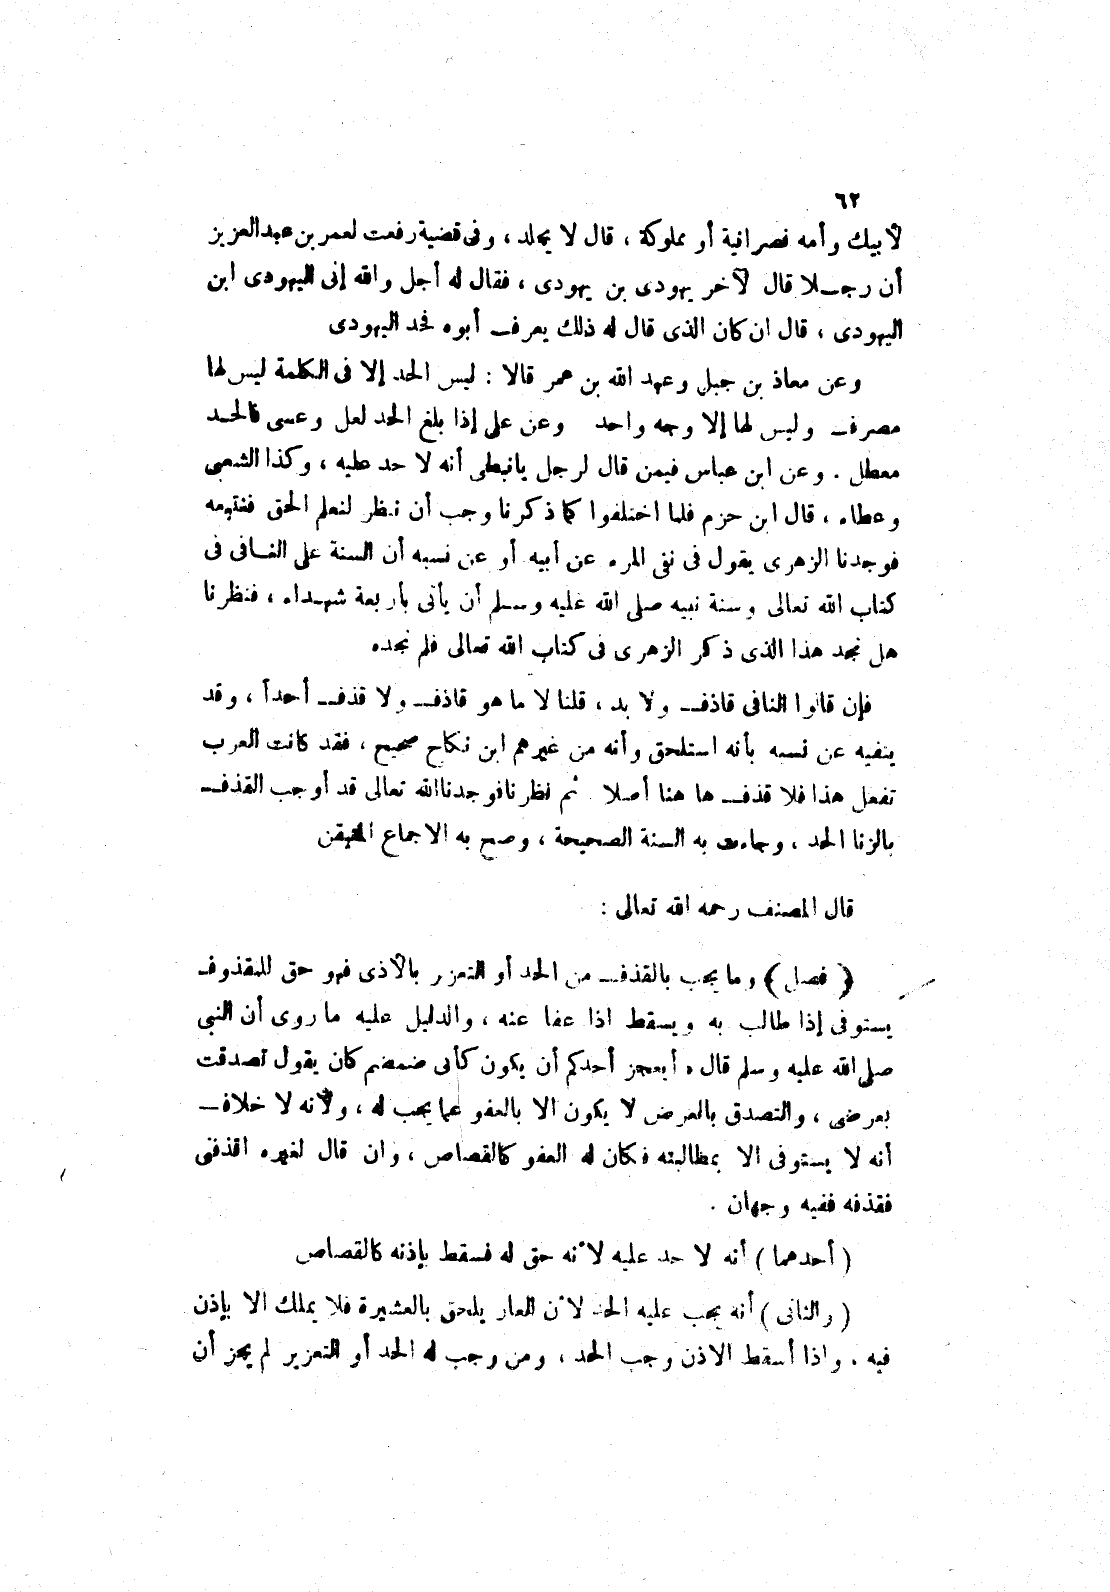 ٦٢
لأبيك وأمه نصرانية أو مملوكة ، قال لا يجلد ، وفى قضية رفعت لعمر بن عبد العزيز
أن رجلا قال لآخر يهودى بن يهودى ، فقال له أجل والله إنى اليهودى ابن
اليهودى ، قال ان كان الذى قال له ذلك يعرف أبوه فحد اليهودى
وعن معاذ بن جبل وعبد الله بن عمر قالا : ليس الحد إلا فى الكلمة ليس لها
مصرف وليس لها إلا وجه واحد وعن على إذا بلغ الحد لعل وعسى فالحد
معطل . وعن ابن عباس فيمن قال لرجل يانبطى أنه لا حد عليه ، وكذا الشعبى
وعطاء ، قال ابن حزم فلما اختلفوا كما ذكرنا وجب أن ننظر لنعلم الحق فنتبعه
فوجدنا الزهرى يقول فى نفى المرء عن أبيه أو عن نسبه أن السنة على النافى فى
كتاب الله تعالى وسنة نبيه صلى الله عليه وسلم أن يأتى بأربعة شهداء ، فنظرنا
هل نجد هذا الذى ذكر الزهرى فى كتاب الله تعالى فلم نجده
فإن قالوا النافى قاذف ولا بد ، قلنا لا ما هو قاذف ولا قذف أحدا ، وقد
ينفيه عن نسبه بأنه استلحق وأنه من غيرهم ابن نكاح صحيح ، فقد كانت العرب
تفعل هذا فلا قذف ها هنا أصلا ثم نظرنا فوجدنا الله تعالى قد أوجب القذف
بالزنا الحد ، وجاءت به السنة الصحيحة ، وصح به الاجماع المتيقن
قال المصنف رحمه الله تعالى :
( فصل ) وما يجب بالقذف من الحد أو التعزير بالأذى فهو حق للمقذوف
يستوفى إذا طالب به ويسقط اذا عفا عنه ، والدليل عليه ما روى أن النبى
صلى الله عليه وسلم قال « أيعجز أحدكم أن يكون كأبى ضمضم كان يقول تصدقت
بعرضى ، والتصدق بالعرض لا يكون الا بالعفو عما يجب له ، ولأنه لا خلاف
أنه لا يستوفى الا بمطالبته فكان له العفو كالقصاص ، وان قال لغيره اقذفنى
فقذفه ففيه وجهان .
( أحدهما ) أنه لا حد عليه لأنه حق له فسقط بإذنه كالقصاص
( والثانى ) أنه يجب عليه الحد لأن العار يلحق بالعشيرة فلا يملك الا بإذن
فيه ، واذا أسقط الاذن وجب الحد ، ومن وجب له الحد أو التعزير لم يجز أن